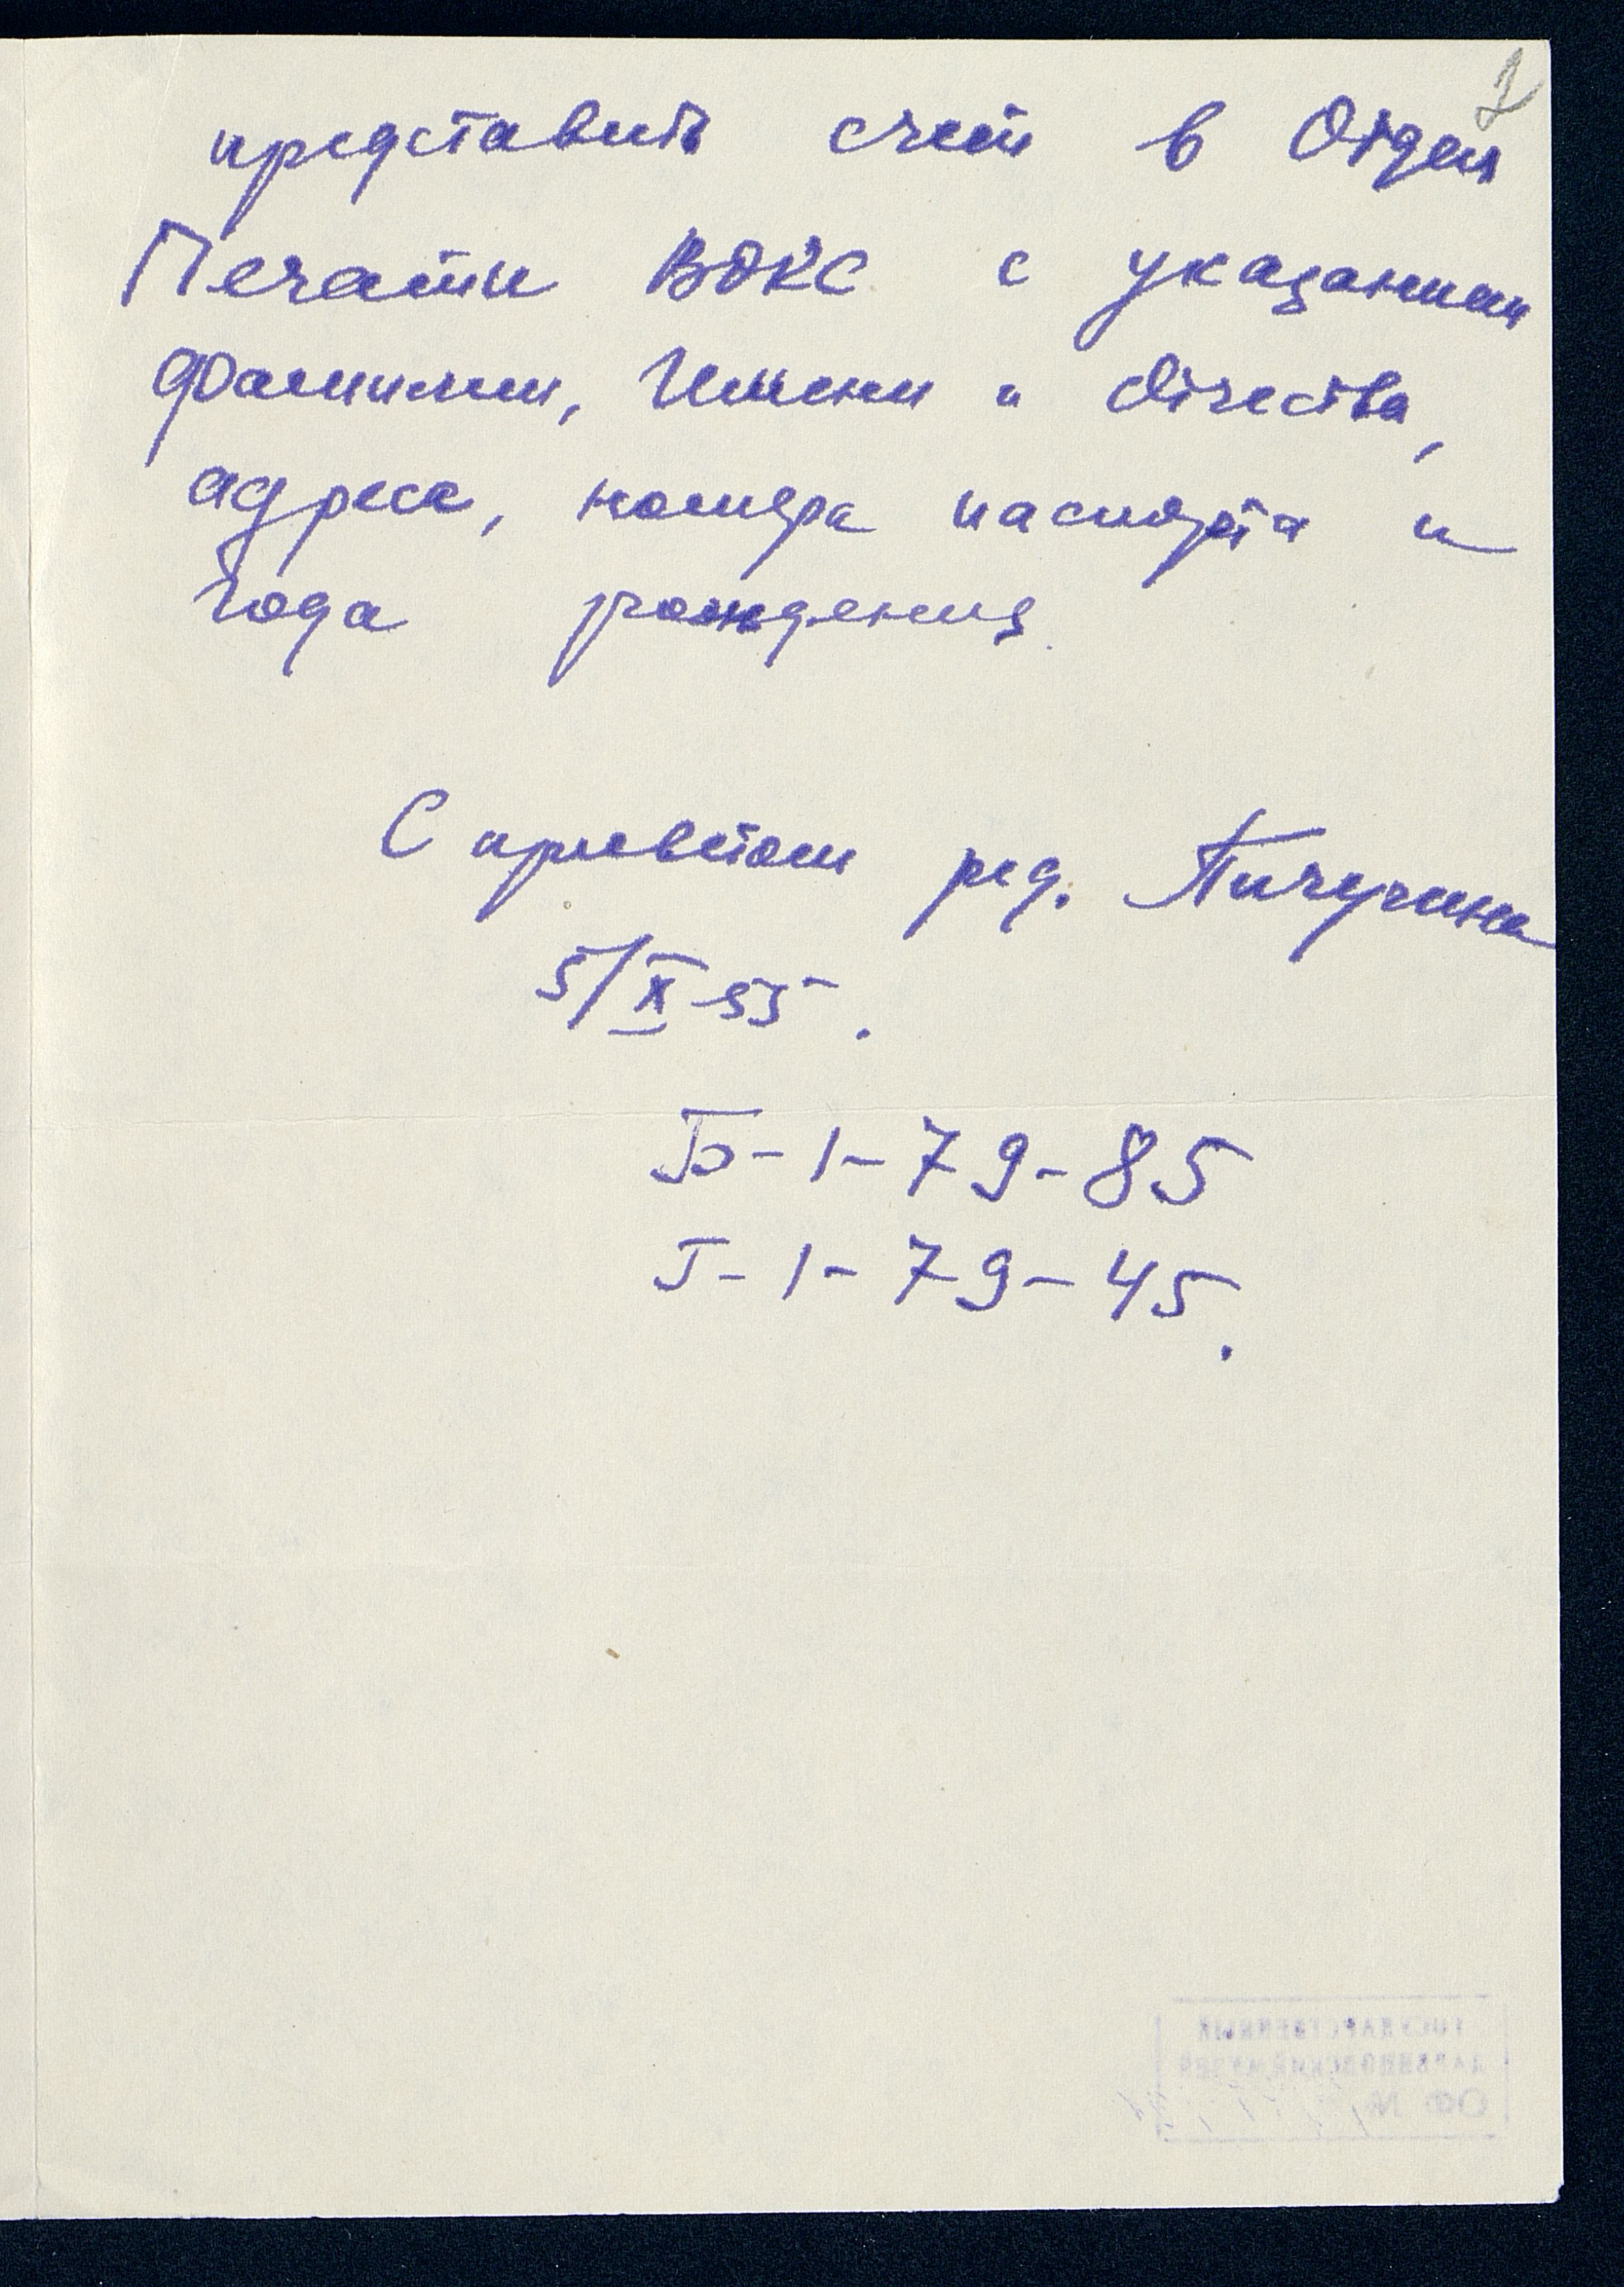 2
представить счет в Отдел
Печати ВОКС с указанием
Фамилии, Имени и Отчества,
адреса, номера паспорта и
года рождения.
С приветом ред. Пичугина
5/X-55.
Б-1-79-85
Г-1-79-45.
ГОСУДАРСТВЕННЫЙ
ДАРВИНОВСКИЙ МУЗЕЙ
ОФ №